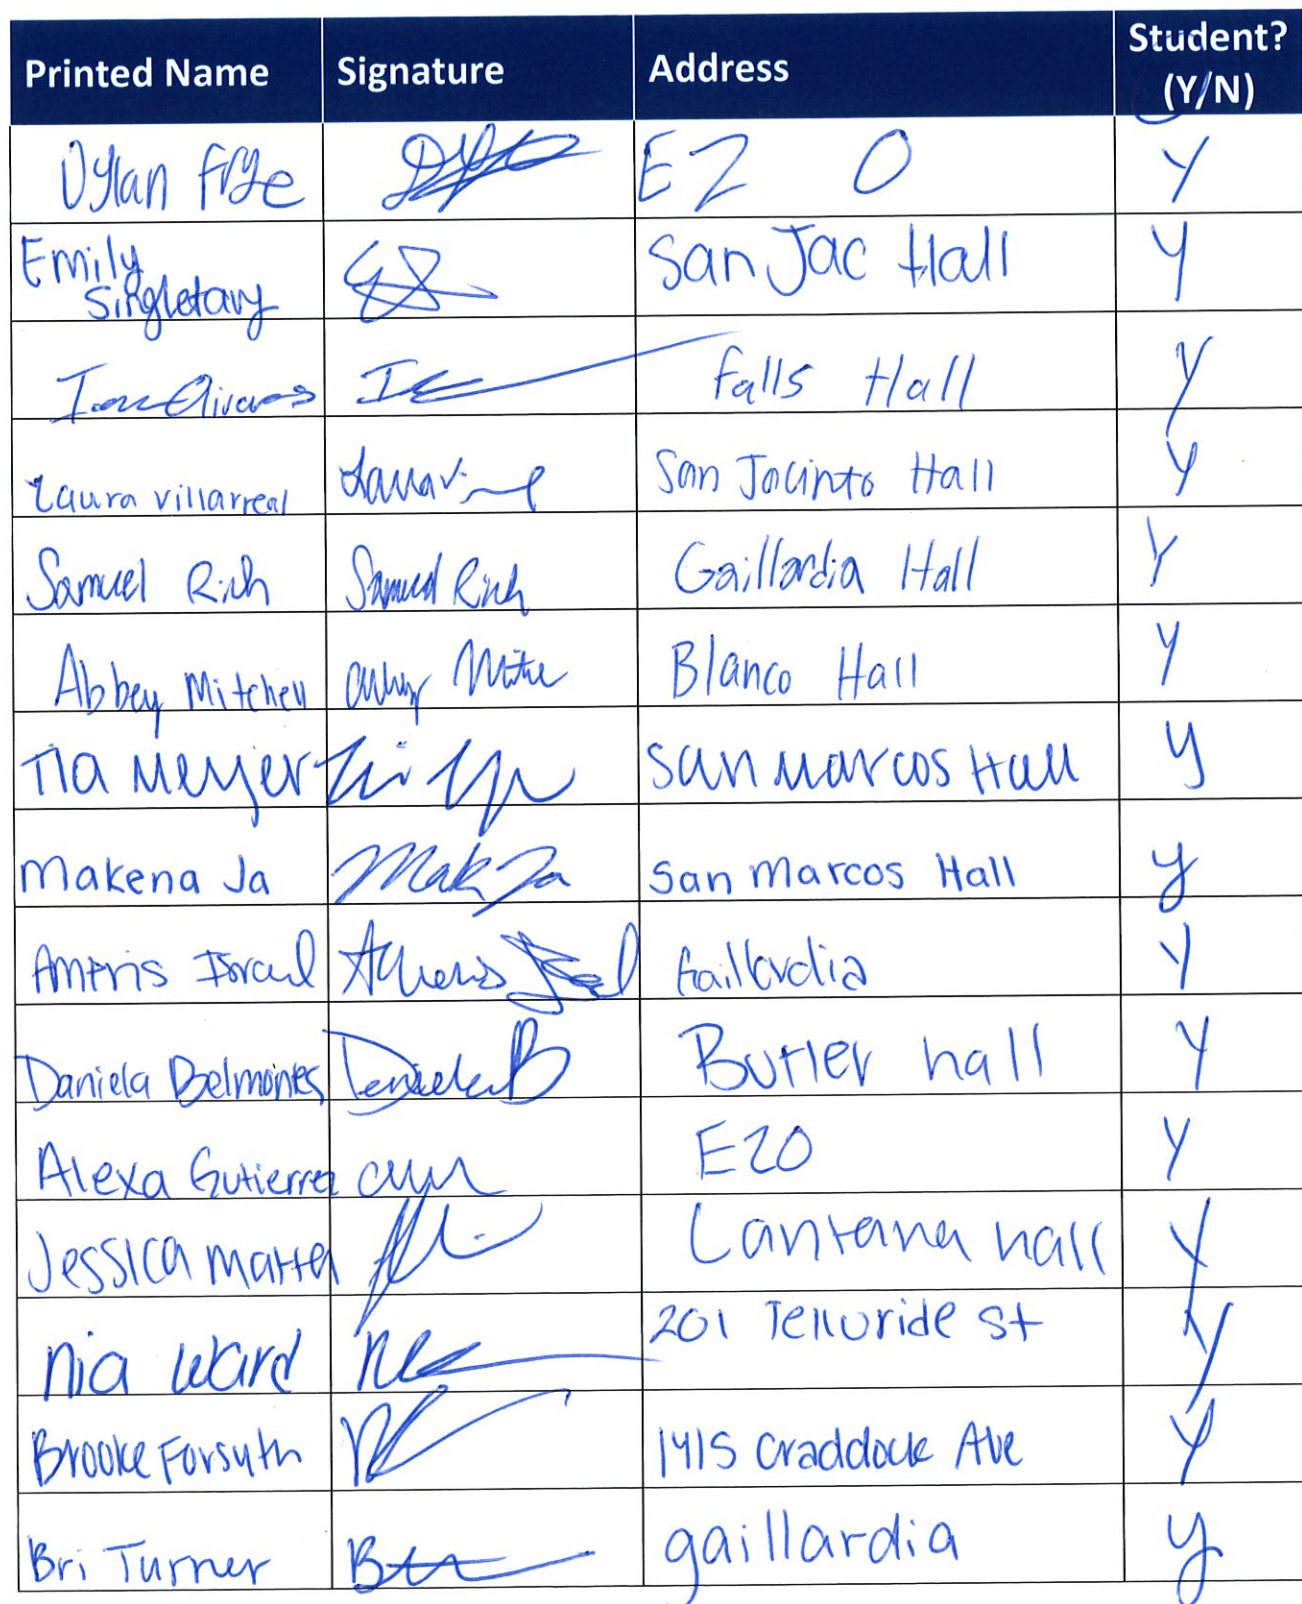 Printed Name Signature Address Student? (Y/N)
Dylan Frye E Z O Y
Emily San Jac Hall Y
Singletary
Falls Hall Y
Laura Villarreal San Jacinto Hall Y
Samuel Rich Samuel Rich Gaillardia Hall Y
Abbey Mitchell Blanco Hall Y
Tia Meyer San Marcos Hall y
Makena Ja Mak Ja San Marcos Hall y
Israel Gaillardia Y
Daniela Belmontes Daniela B Butler hall Y
Alexa Gutierrez EZO Y
Jessica Lantana hall Y
nia ward 201 Telluride St Y
Brooke Forsyth 1415 Craddock Ave Y
Bri Turner gaillardia y